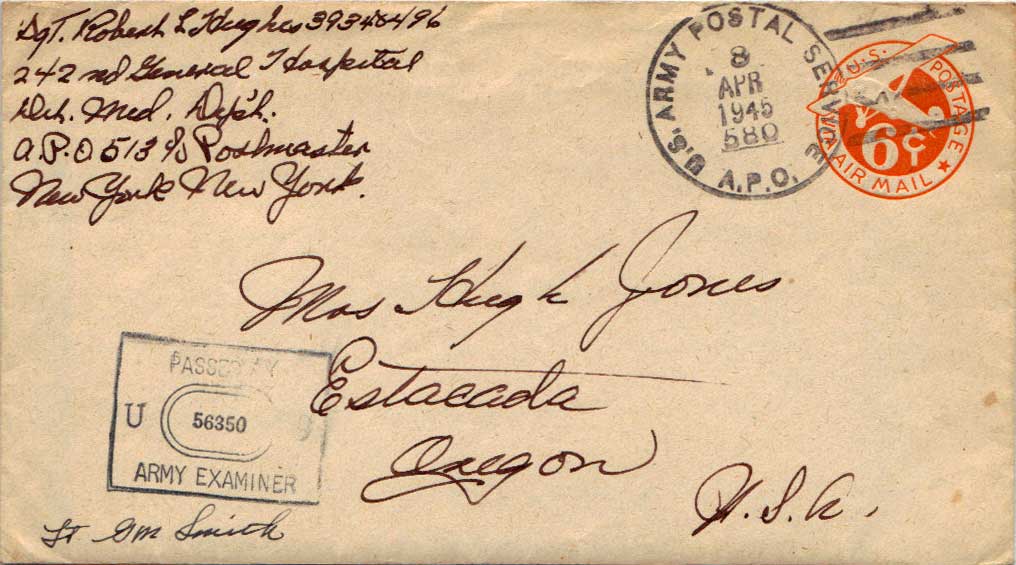 Sgt. Robert L Hughes 39348496
242 nd General Hospital
Det. Med. Dep't.
A.P.O. 513 c/o Postmaster
New York New York.
U.S. ARMY POSTAL SERVICE
8
APR
1945
580
A.P.O.
U.S. POSTAGE
6¢
VIA AIR MAIL
Mrs Hugh Jones
Estacada
Oregon
U.S.A.
PASSED BY
U
56350
ARMY EXAMINER
Lt GM Smith